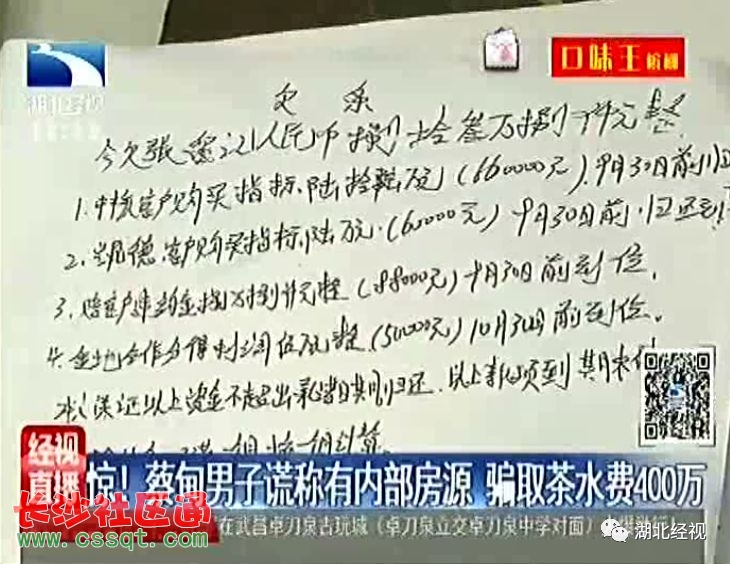 湖北经视
口味王 槟榔
欠条
今欠张 人民币捌拾 万捌仟元整
1.中核客户购买指标,陆拾陆万元(660000元).9月30日前归
2.凯德客户购买指标,陆万元.(60000元) 9月30日前归还到
3.赔客户违约金捌万捌仟元整(88000元)9月30日前到位.
4.金地合作分得利润伍万元整(50000元)10月30日前到位.
保证以上资金不超出承诺日期归还.以上款项到期未
经视直播
惊!蔡甸男子谎称有内部房源 骗取茶水费400万
在武昌卓刀泉古玩城(卓刀泉立交卓刀泉中学对面)
长沙社区通
www.cssqt.com
湖北经视